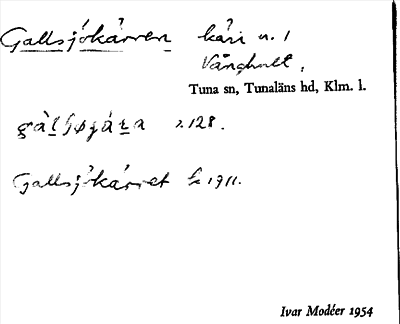 Gallsjökärren kärr n. 1
Vångholt,
Tuna sn, Tunaläns hd, Klm. l.
s. 128.
Gallsjökärret Ek 1911.
Ivar Modéer 1954